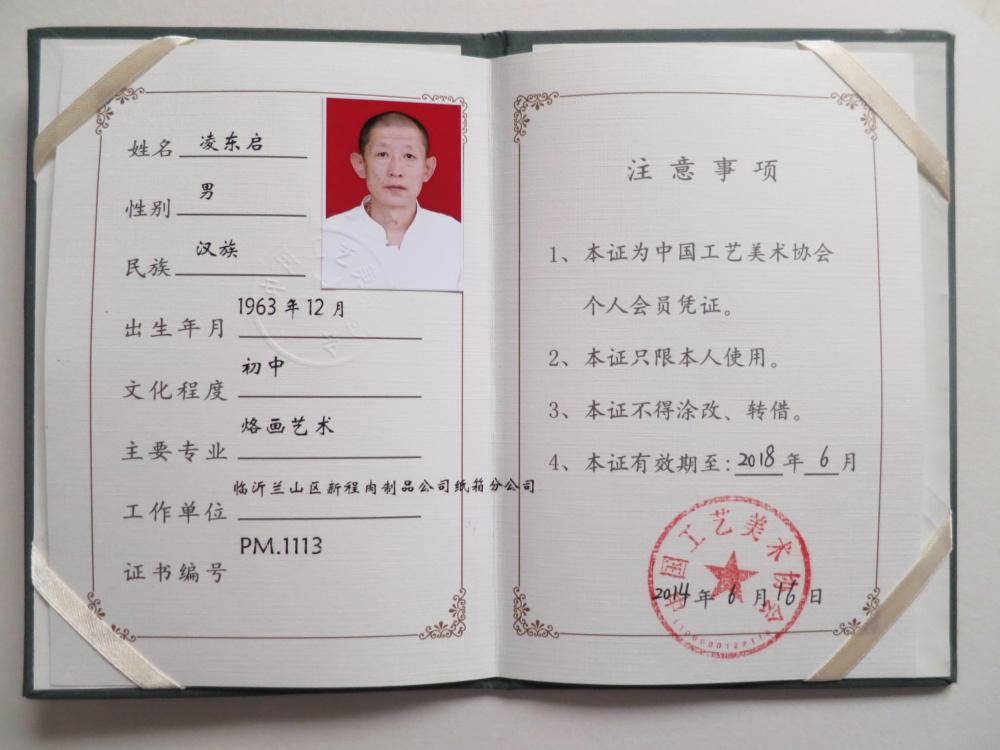 姓名 凌东启
性别 男
民族 汉族
出生年月 1963年12月
文化程度 初中
主要专业 烙画艺术
工作单位 临沂兰山区新程肉制品公司纸箱分公司
证书编号 PM.1113
注意事项
1、本证为中国工艺美术协会
个人会员凭证。
2、本证只限本人使用。
3、本证不得涂改、转借。
4、本证有效期至:2018年6月
中国工艺美术协会
2014年6月16日